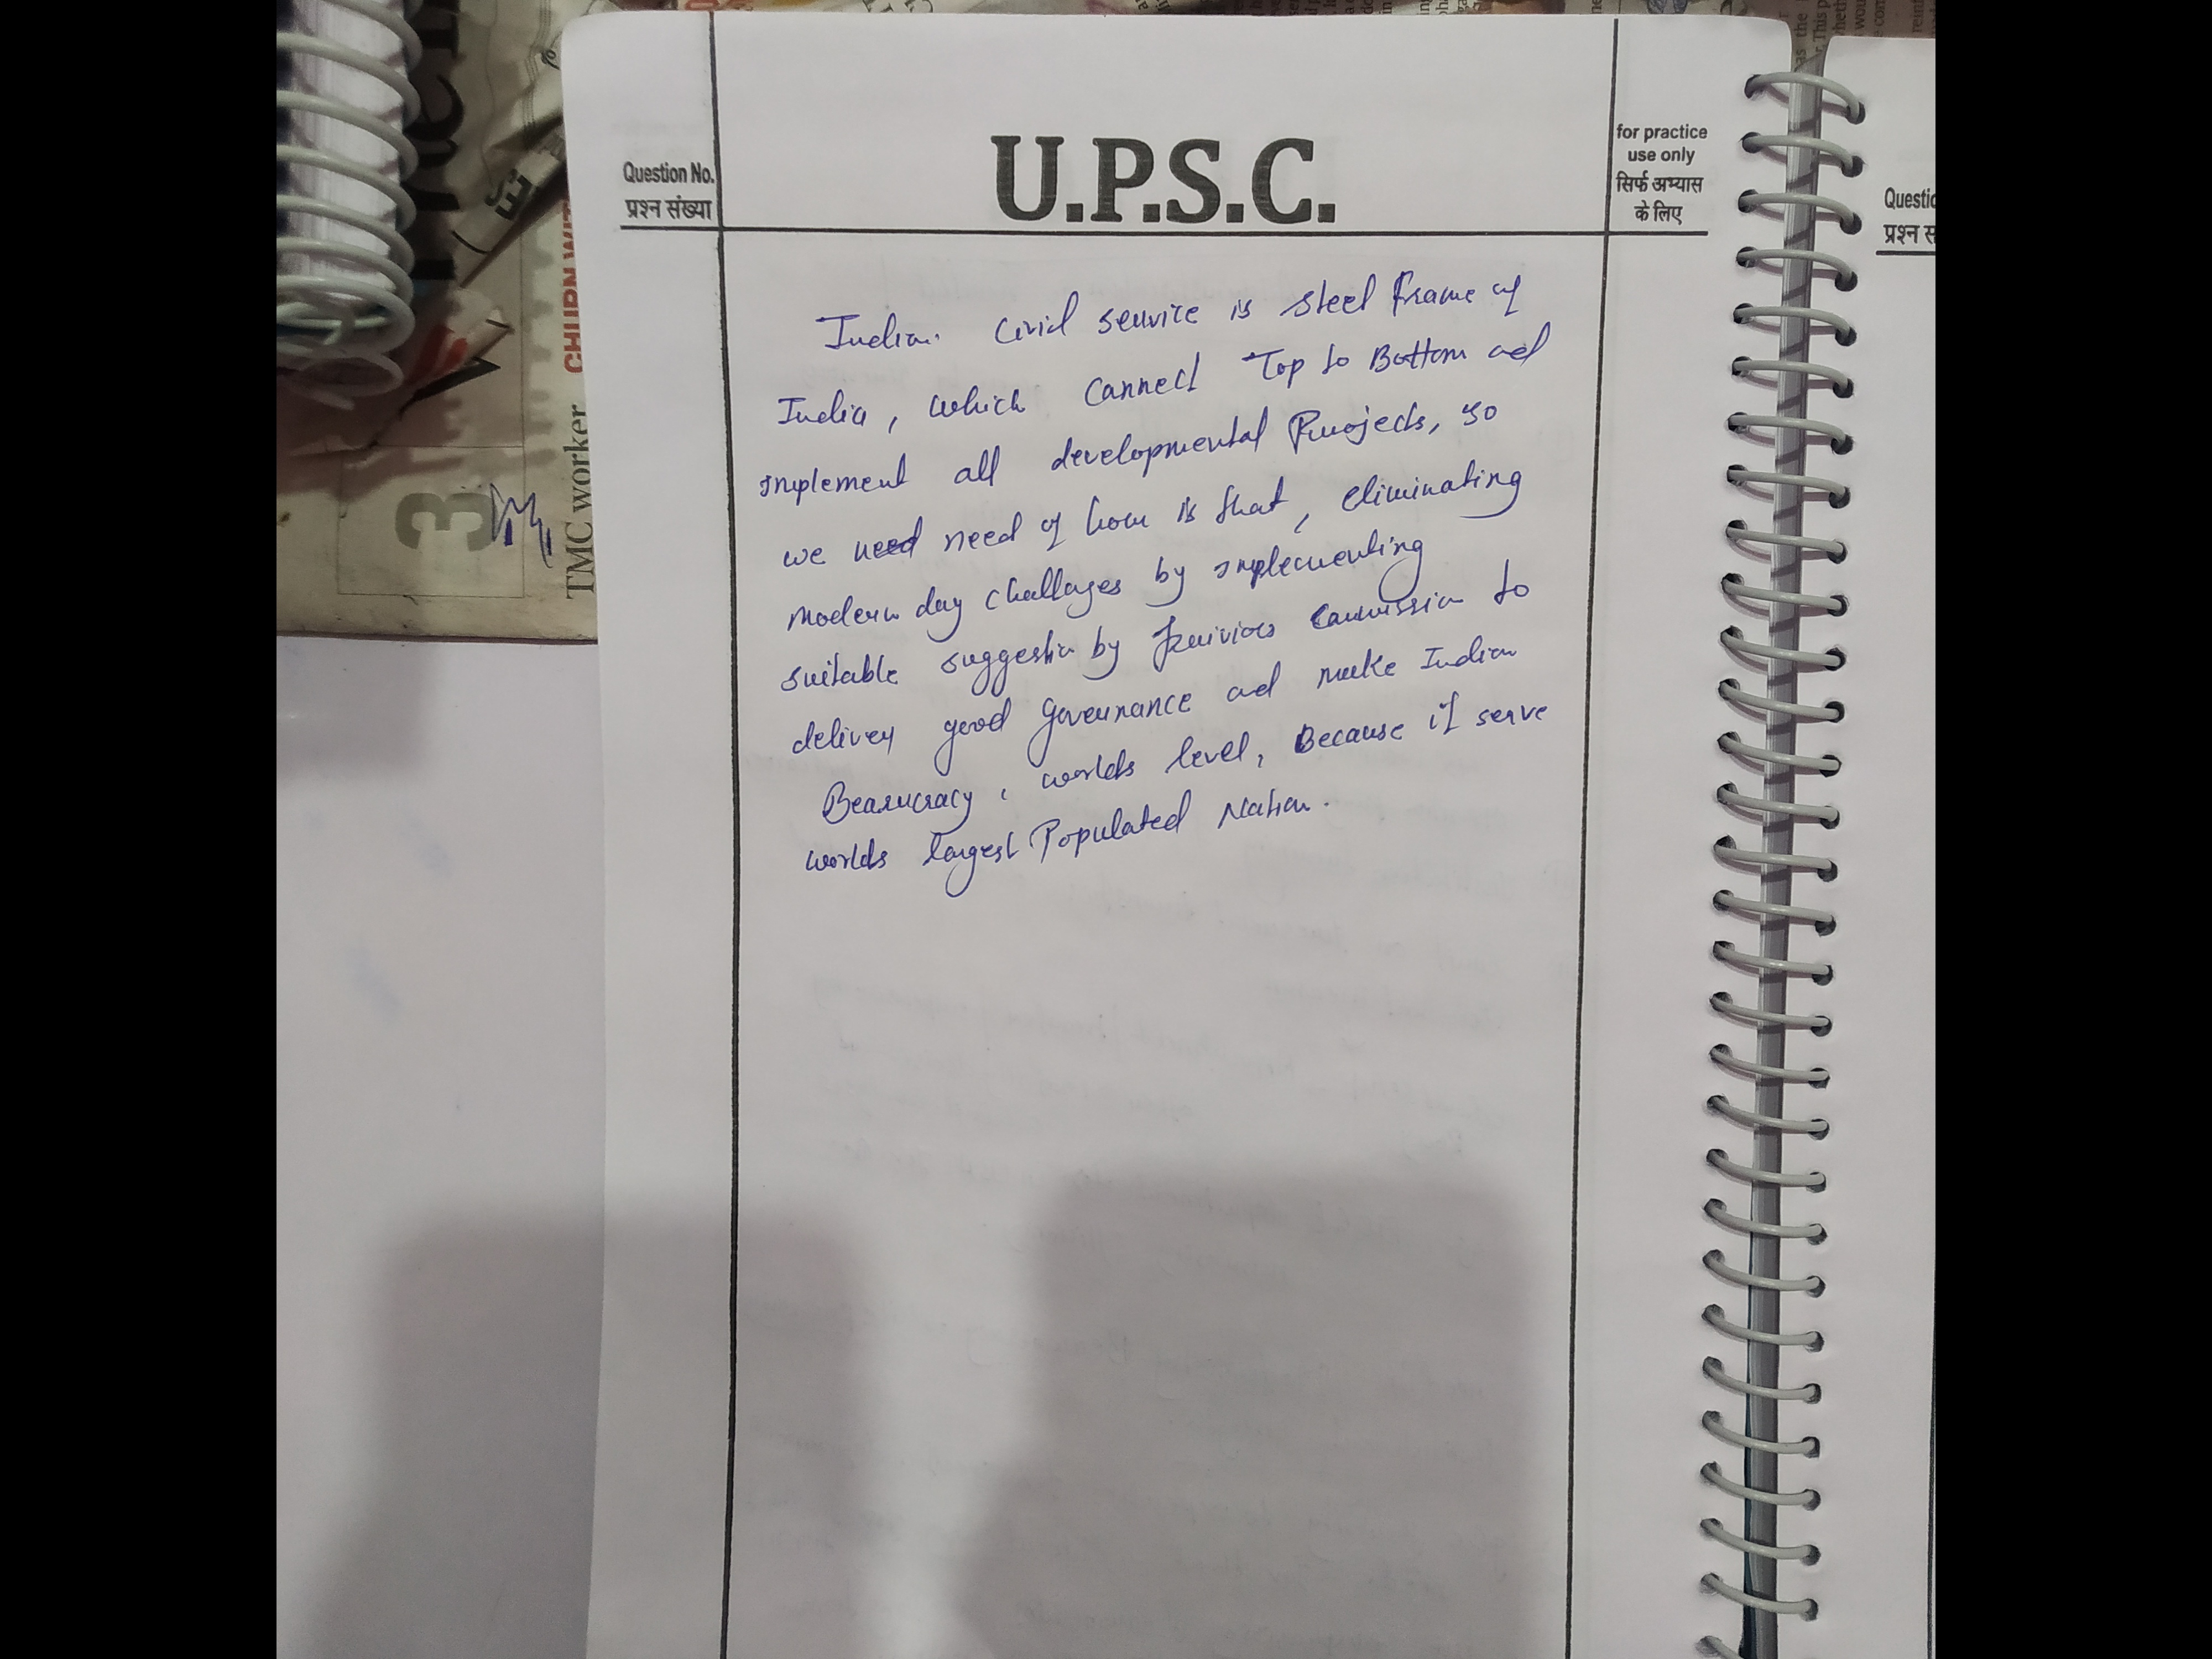 U.P.S.C.
Question No.
प्रश्न संख्या
for practice
use only
सिर्फ अभ्यास
के लिए
Indian. Civil service is steel frame of
India, which cannect Top to Bottom ad
implement all developmental Projects, so
we need need of hour is that, eliminating
modern day challages by implementing
suitable suggestin by Privios Commission to
delivery good governance ad make Indian
Bearucracy, worlds level, Because it serve
worlds largest Populated Nation.
Questio
प्रश्न स
CHURN WIT
TMC worker
3